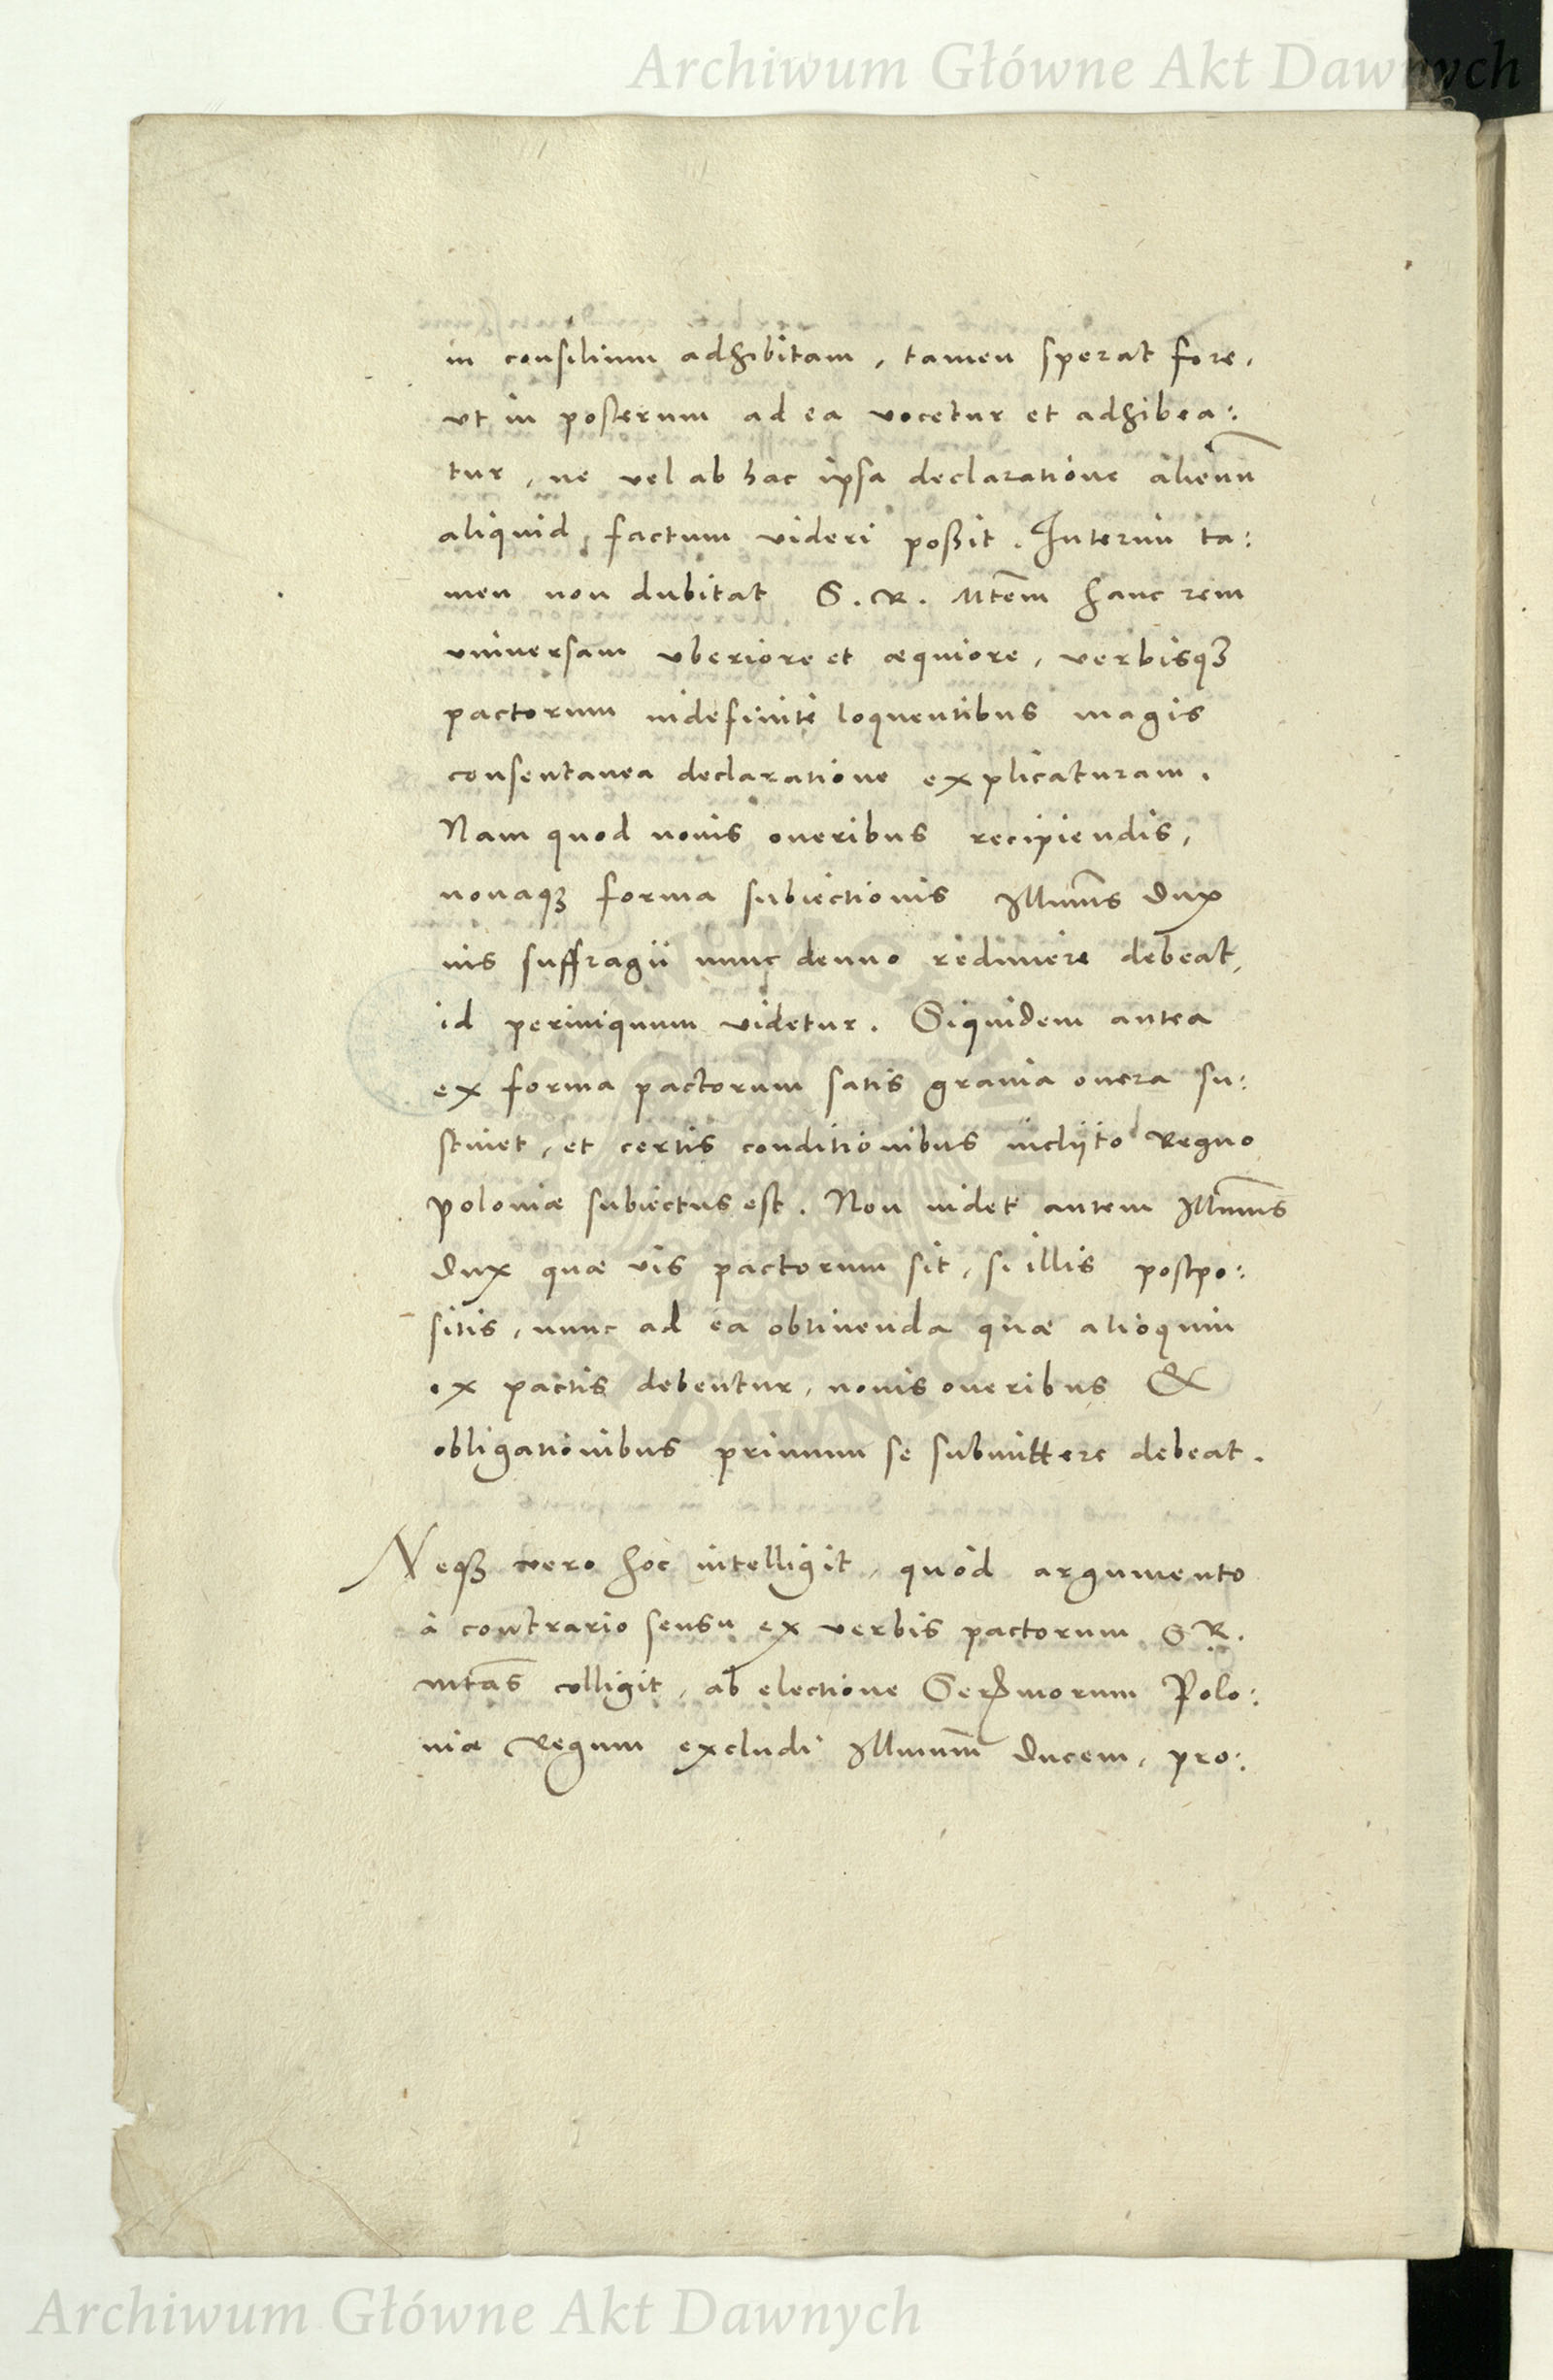 Archiwum Główne Akt Dawnych
in consilium adhibitam, tamen sperat fore,
vt in posterum ad ea vocetur et adhibea:
tur, ne vel ab hac ipsa declaratione alienū
aliquid factum videri poßit. Interim ta:
men non dubitat S. R. Mtēm hanc rem
vniuersam vberiore et æquiore, verbisqȝ
pactorum indefinite loquentibus magis
consentanea declaratione explicaturam.
Nam quod nouis oneribus recipiendis,
nouaqȝ forma subiectionis Illmūs Dux
ius suffragii nunc denuo redimere debeat,
id periniquum videtur. Siquidem antea
ex forma pactorum satis grauia onera su:
stinet, et certis conditionibus inclÿto Regno
Poloniæ subiectus est. Non uidet autem Illmūs
Dux quæ vis pactorum sit, si illis postpo:
sitis, nunc ad ea obtinenda quæ alioquin
ex pactis debentur, nouis oneribus &
obligationibus primum se submittere debeat.
Neqȝ vero hoc intelligit, quòd argumento
à contrario sensu ex verbis pactorum S R.
mtās colligit, ab electione Sermorum Polo:
niæ Regum excludi Illmūm Ducem, pro:
ARCHIWUM GŁÓWNE
AKT DAWNYCH
Archiwum Główne Akt Dawnych